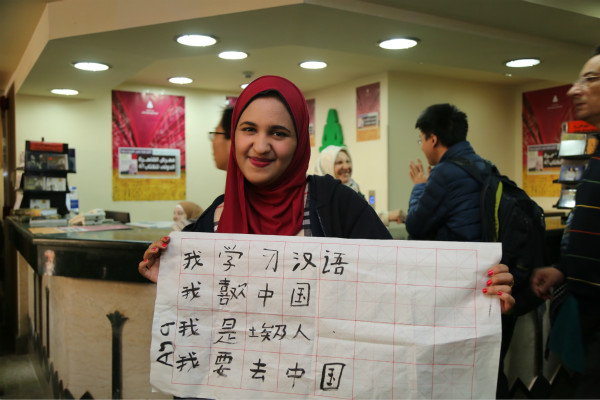 我学习汉语
我喜欢中国
我是埃及人
我要去中国